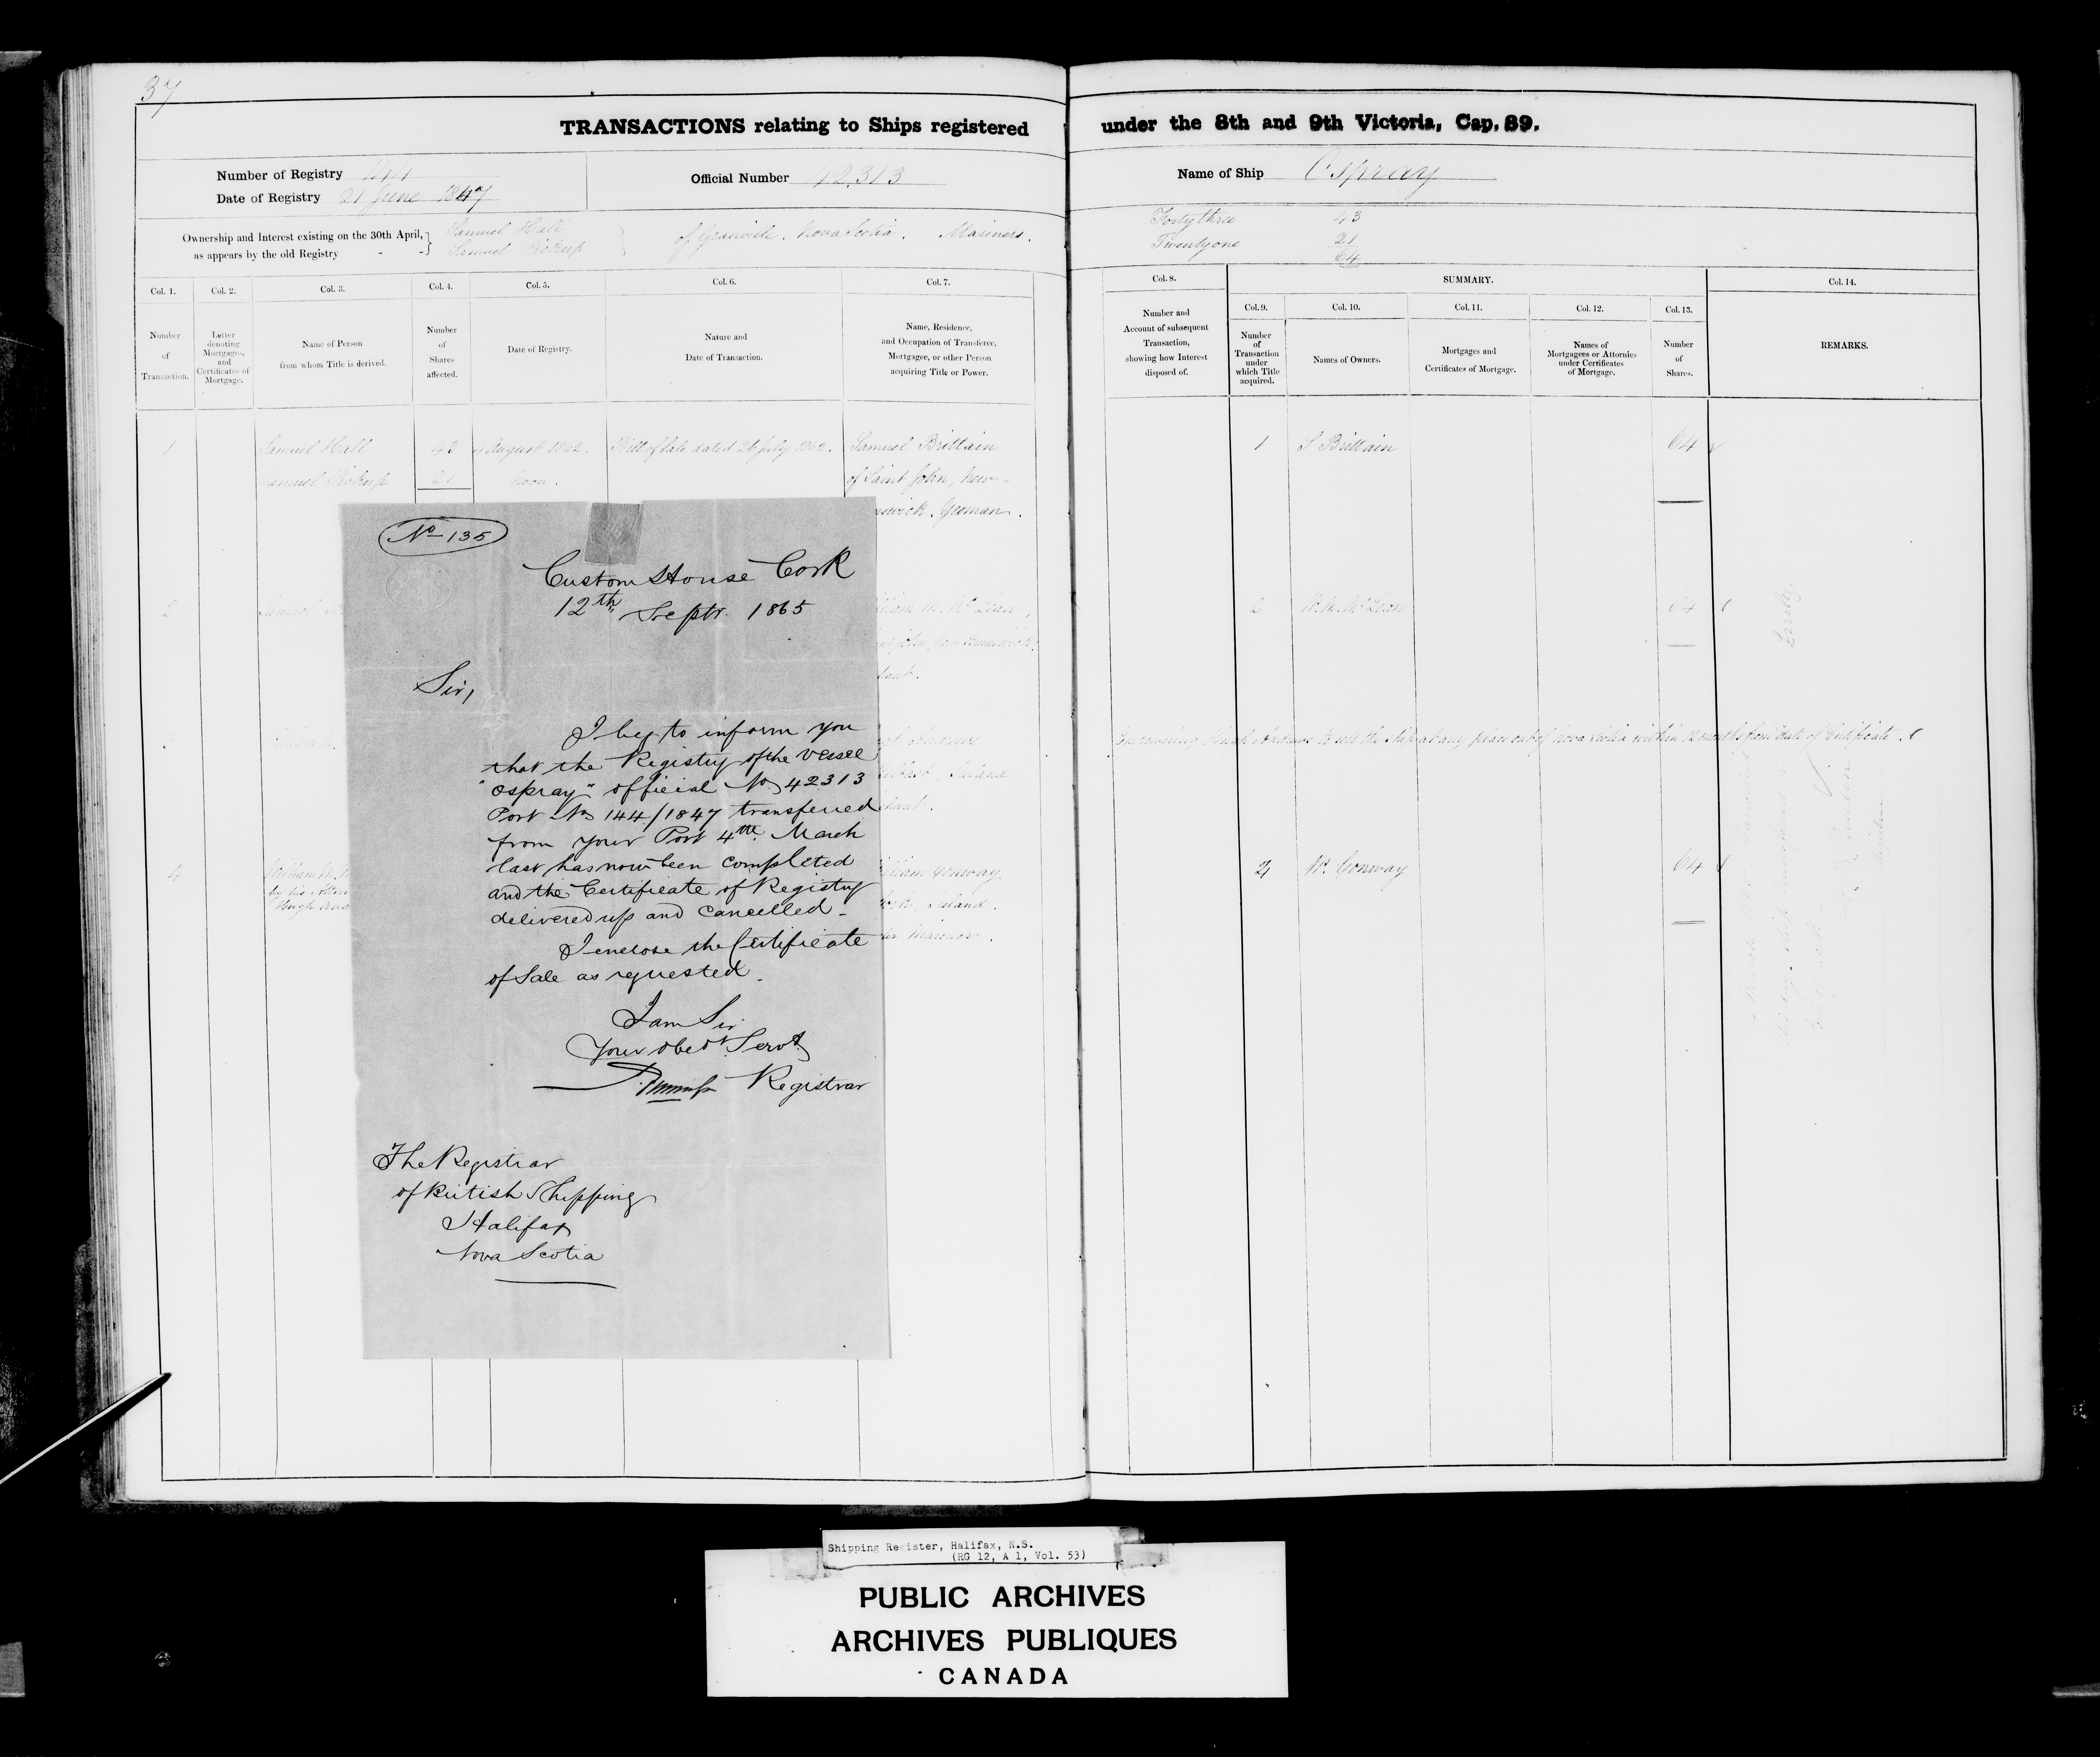 37
TRANSACTIONS relating to Ships registered under the 8th and 9th Victoria, Cap. 89.
Number of Registry 144
Date of Registry 21 June 1847
Official Number 42,313
Name of Ship Ospray
Ownership and Interest existing on the 30th April, as appears by the old Registry - -
Samuel Hall
Samuel Pickup
of Granville. Nova Scotia. Mariners.
Forty three 43
Twenty one 21
64
Col. 1. Col. 2. Col. 3. Col. 4. Col. 5. Col. 6. Col. 7.
Number of Transaction.
Letter denoting Mortgages, and Certificates of Mortgage.
Name of Person from whom Title is derived.
Number of Shares affected.
Date of Registry.
Nature and Date of Transaction.
Name, Residence, and Occupation of Transferee, Mortgagee, or other Person acquiring Title or Power.
Col. 8.
Number and Account of subsequent Transaction, showing how Interest disposed of.
SUMMARY.
Col. 9. Col. 10. Col. 11. Col. 12. Col. 13. Col. 14.
Number of Transaction under which Title acquired.
Names of Owners.
Mortgages and Certificates of Mortgage.
Names of Mortgagees or Attornies under Certificates of Mortgage.
Number of Shares.
REMARKS.
1 Samuel Hall 43 4 August 1862. Bill of Sale dated 26 July 1862. Samuel Brittain
Samuel Pickup 21 noon. of Saint John, New-
nswick. Yeoman.
1 S Brittain 64
2 Samuel
2 W. M. McLean 64
3
Empowering Hugh Andrews to sell the Ship at any place out of Nova Scotia within 12 months from date of Certificate.
4
by his
Hugh
lliam Conway
Ireland.
Mariner.
4 W. Conway 64
No 135
Custom House Cork
12th Septr. 1865
Sir,
I beg to inform you
that the Registry of the Vessel
"Ospray" official No 42313
Port No 144/1847 transferred
from your Port 4th March
last has now been completed
and the Certificate of Registry
delivered up and cancelled -
I enclose the Certificate
of Sale as requested.
I am Sir
Your obedt Servt
Registrar
The Registrar
of British Shipping
Halifax
Nova Scotia
Shipping Register, Halifax, N.S.
(RG 12, A 1, Vol. 53)
PUBLIC ARCHIVES
ARCHIVES PUBLIQUES
CANADA